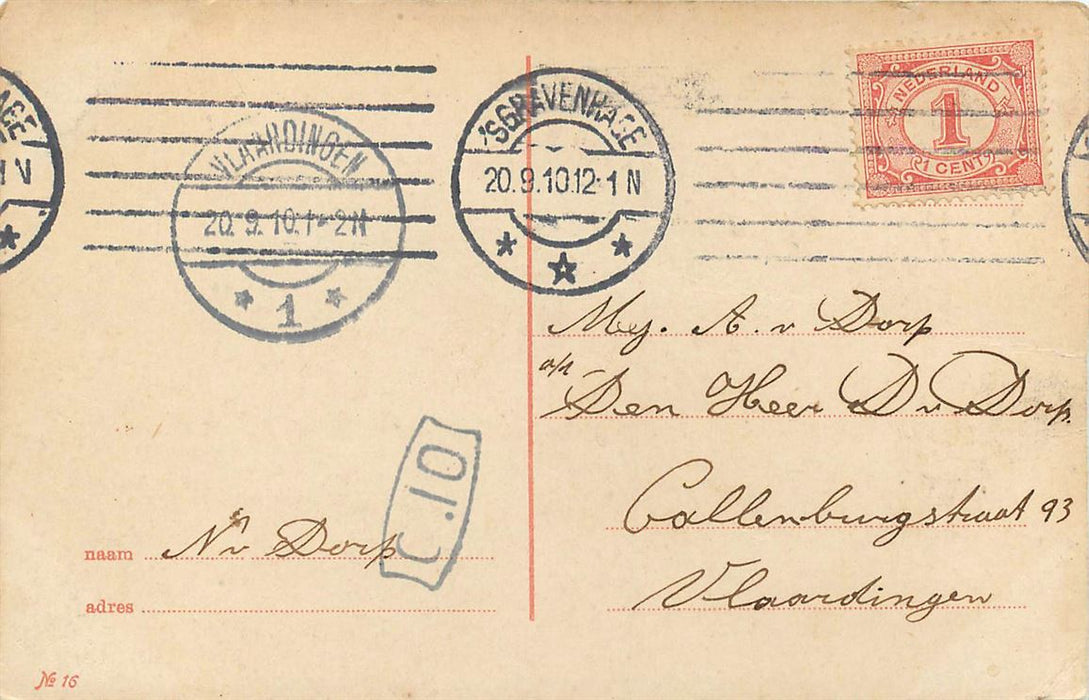 AGE
1 V
VLAARDINGEN
20. 9. 10.1-2N
1
'SGRAVENHAGE
20.9.10.12-1 N
NEDERLAND
1
1 CENT
Mej. A. v Dorp
a/h
Den Heer D v Dorp.
Callenburgstraat 93
Vlaardingen
C.10
naam N v Dorp
adres
№ 16